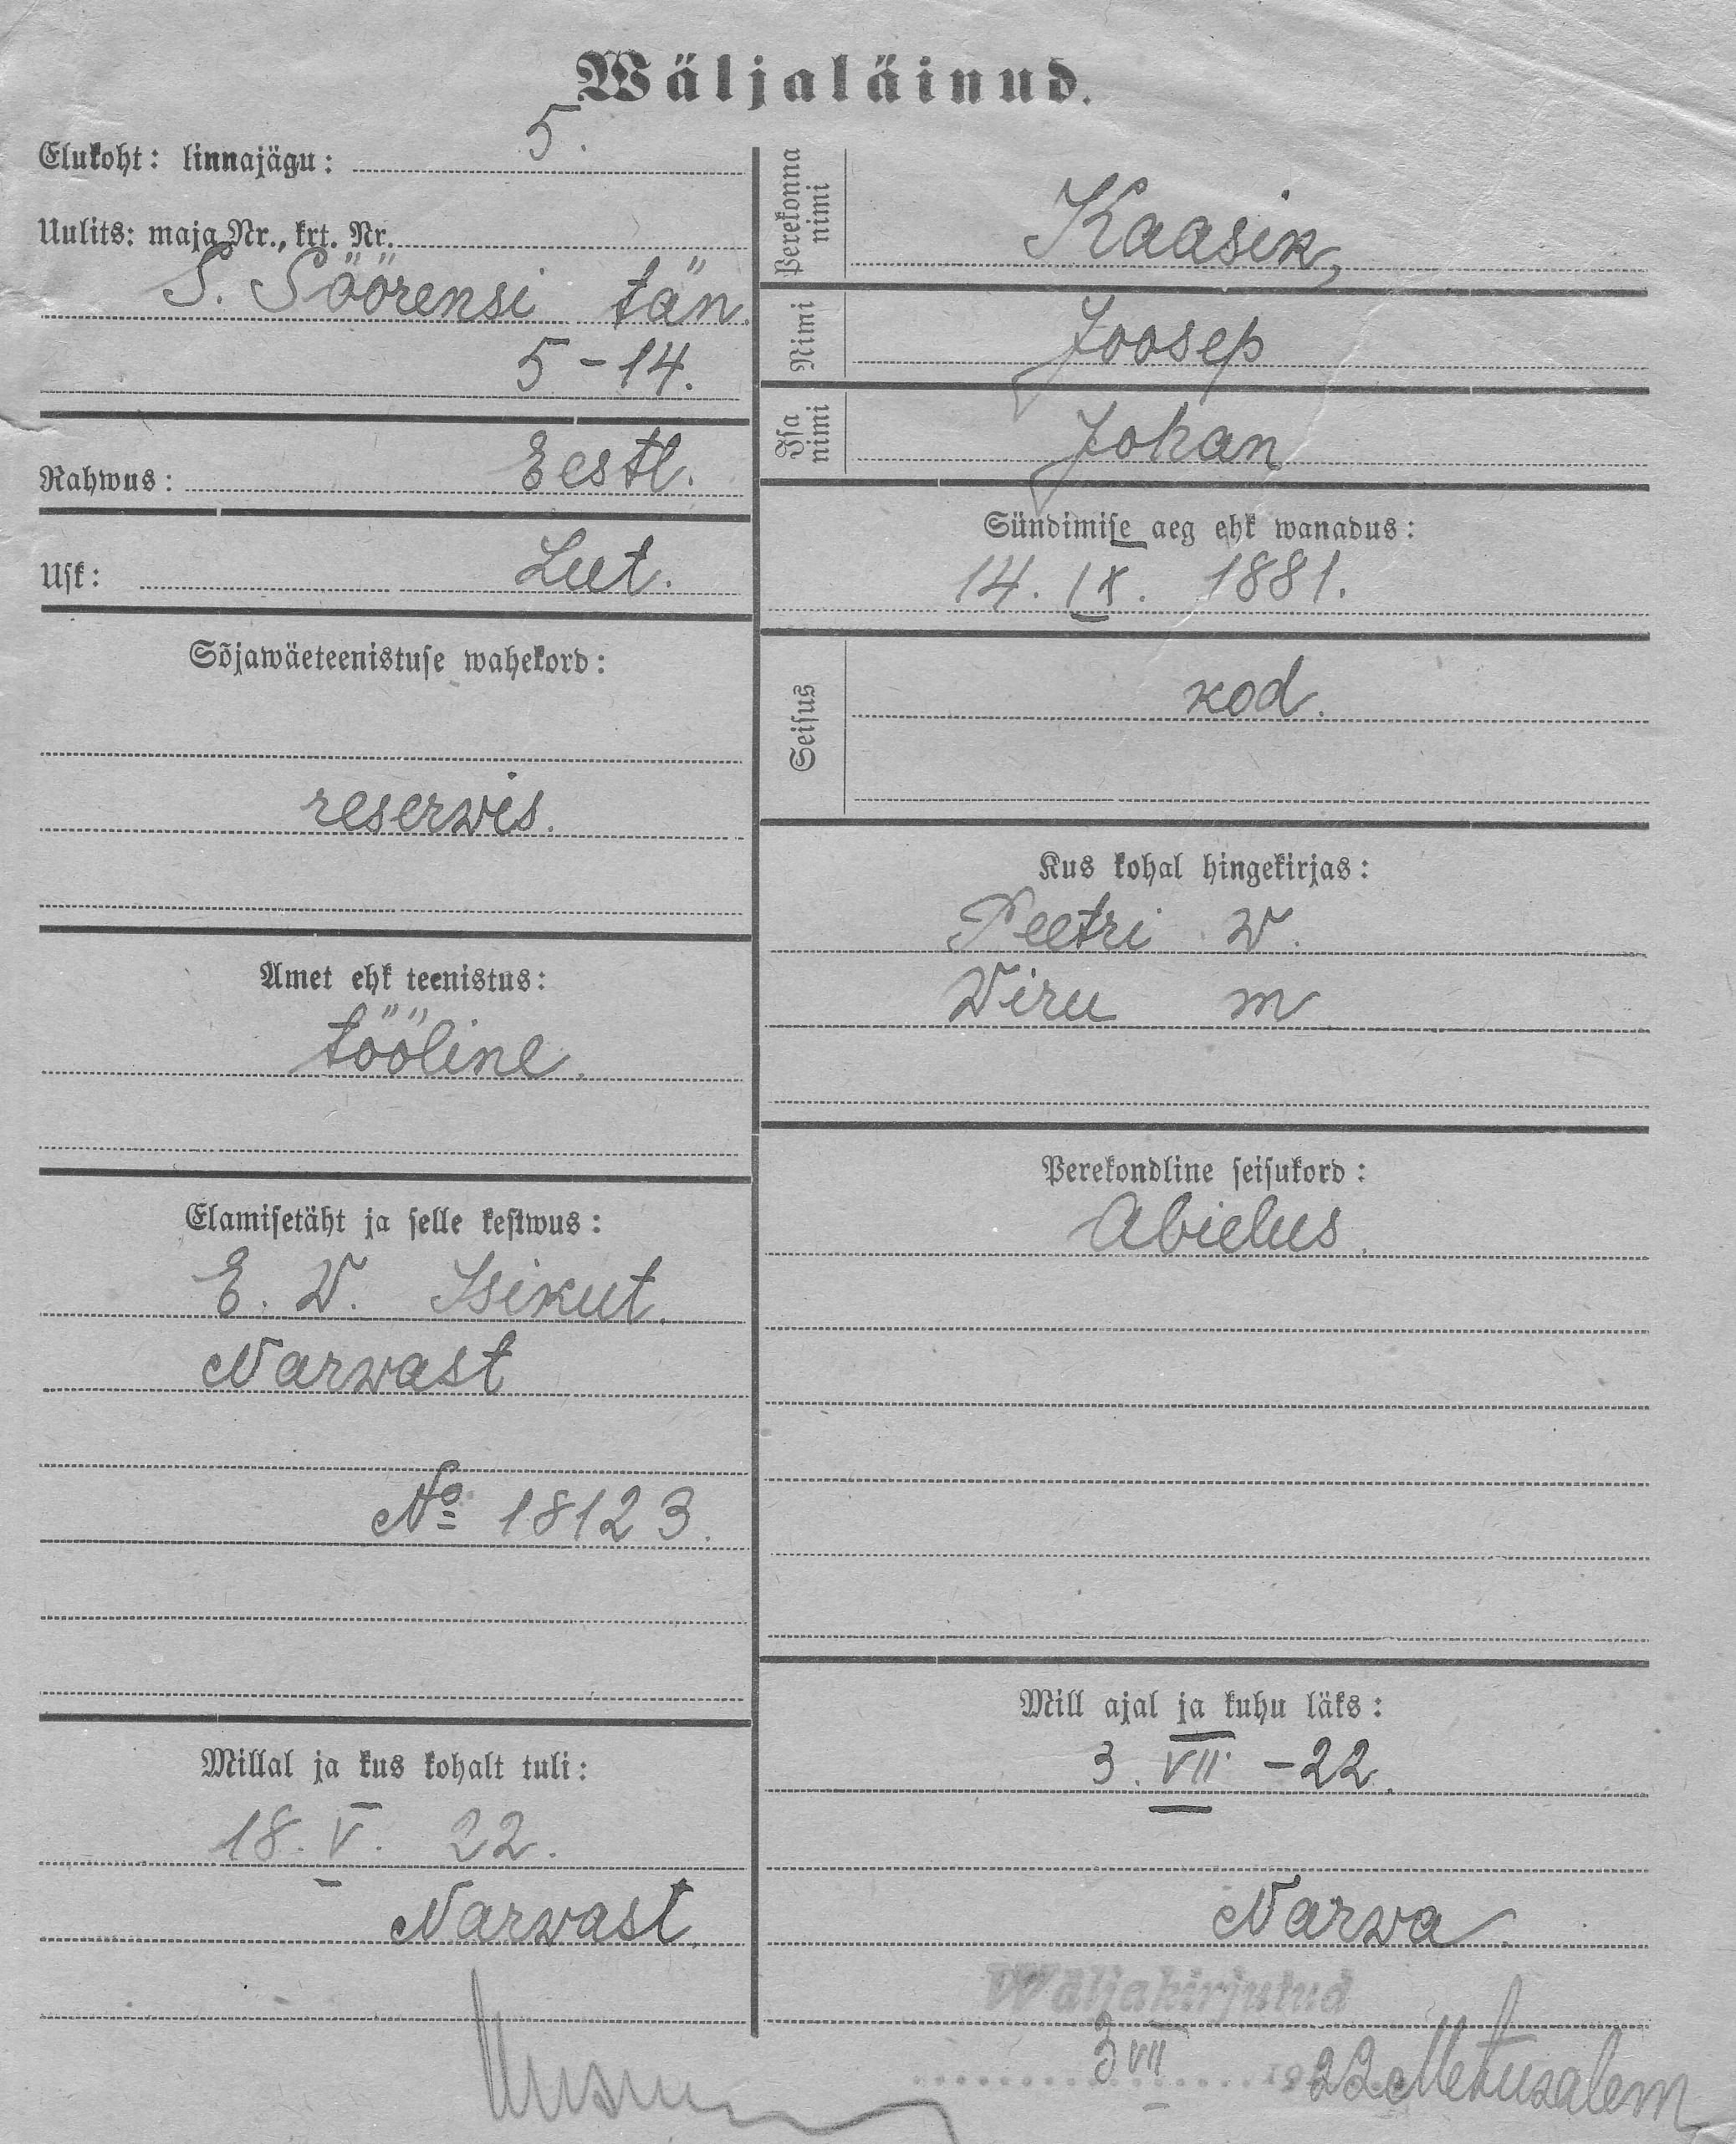 Wäljaläinud.
Elukoht: linnajägu: 5.
Uulits: maja Nr., krt. Nr.
S. Söörensi tän.
5-14.
Rahwus: Eestl.
Usk: Lut.
Sõjawäeteenistuse wahekord:
reserwis.
Amet ehk teenistus:
tööline.
Elamisetäht ja selle kestwus:
E. W. Isikut.
Narwast
№ 18123.
Millal ja kus kohalt tuli:
18. V. 22.
Narwast
Perekonna nimi
Kaasik,
Nimi
Joosep
Isa nimi
Johan
Sündimise aeg ehk wanadus:
14. IX. 1881.
Seisus
kod.
Kus kohal hingekirjas:
Peetri w.
Wiru m
Perekondline seisukord:
Abielus.
Mill ajal ja kuhu läks:
3. VII -22.
Narwa.
Wäljakirjutud
3 VII 1922 Metusalem